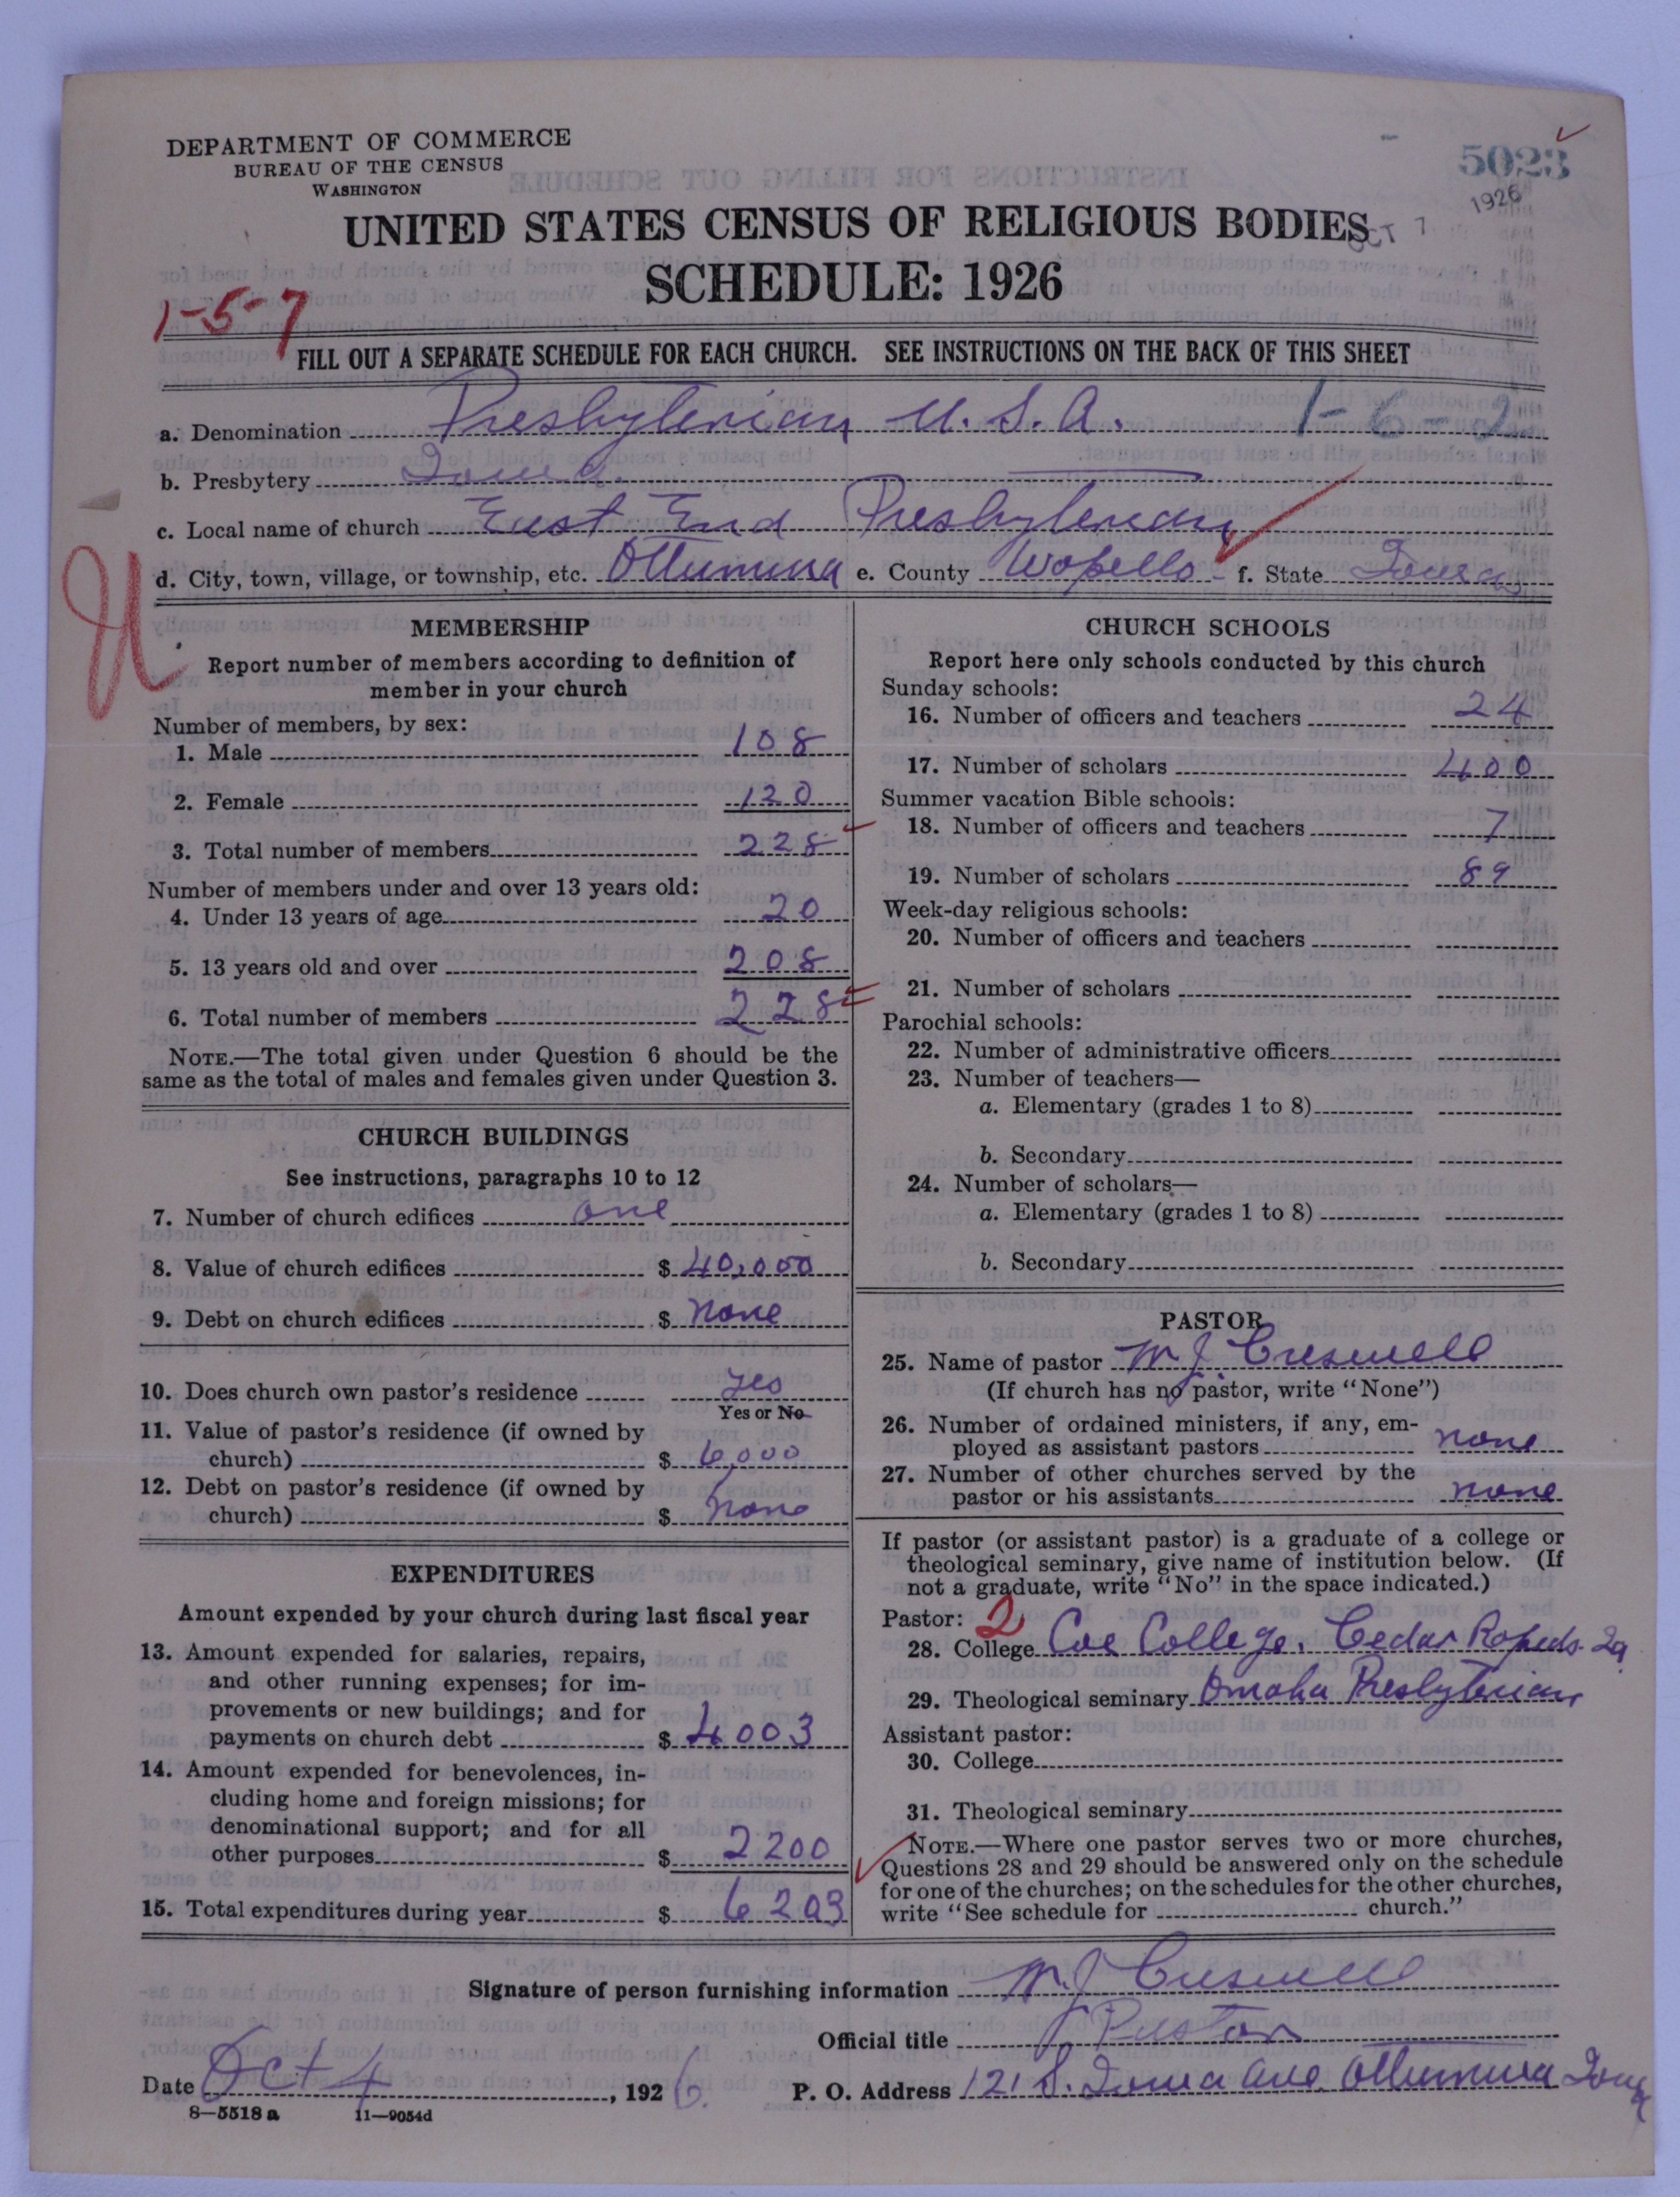 DEPARTMENT OF COMMERCE
BUREAU OF THE CENSUS
WASHINGTON
5023
1926
OCT 7
UNITED STATES CENSUS OF RELIGIOUS BODIES
SCHEDULE: 1926
1-5-7
FILL OUT A SEPARATE SCHEDULE FOR EACH CHURCH. SEE INSTRUCTIONS ON THE BACK OF THIS SHEET
a. Denomination Presbyterian U.S.A. 1-6-2
b. Presbytery Iowa.
c. Local name of church East End Presbyterian
d. City, town, village, or township, etc. Ottumwa e. County Wapello f. State Iowa
U
MEMBERSHIP
Report number of members according to definition of
member in your church
Number of members, by sex:
1. Male 108
2. Female 120
3. Total number of members 228
Number of members under and over 13 years old:
4. Under 13 years of age 20
5. 13 years old and over 208
6. Total number of members 228
NOTE.—The total given under Question 6 should be the
same as the total of males and females given under Question 3.
CHURCH BUILDINGS
See instructions, paragraphs 10 to 12
7. Number of church edifices one
8. Value of church edifices $ 40,000
9. Debt on church edifices $ None
10. Does church own pastor's residence yes
Yes or No
11. Value of pastor's residence (if owned by
church) $ 6,000
12. Debt on pastor's residence (if owned by
church) $ None
EXPENDITURES
Amount expended by your church during last fiscal year
13. Amount expended for salaries, repairs,
and other running expenses; for im-
provements or new buildings; and for
payments on church debt $ 4003
14. Amount expended for benevolences, in-
cluding home and foreign missions; for
denominational support; and for all
other purposes $ 2200
15. Total expenditures during year $ 6203
CHURCH SCHOOLS
Report here only schools conducted by this church
Sunday schools:
16. Number of officers and teachers 24
17. Number of scholars 400
Summer vacation Bible schools:
18. Number of officers and teachers 7
19. Number of scholars 89
Week-day religious schools:
20. Number of officers and teachers
21. Number of scholars
Parochial schools:
22. Number of administrative officers
23. Number of teachers—
a. Elementary (grades 1 to 8)
b. Secondary
24. Number of scholars—
a. Elementary (grades 1 to 8)
b. Secondary
PASTOR
25. Name of pastor W J Creswell
(If church has no pastor, write "None")
26. Number of ordained ministers, if any, em-
ployed as assistant pastors none
27. Number of other churches served by the
pastor or his assistants none
If pastor (or assistant pastor) is a graduate of a college or
theological seminary, give name of institution below. (If
not a graduate, write "No" in the space indicated.)
Pastor: 2
28. College Coe College, Cedar Rapids Ia
29. Theological seminary Omaha Presbyterian
Assistant pastor:
30. College
31. Theological seminary
NOTE.—Where one pastor serves two or more churches,
Questions 28 and 29 should be answered only on the schedule
for one of the churches; on the schedules for the other churches,
write "See schedule for church."
Signature of person furnishing information W. J Creswell
Official title Pastor
Date Oct 4, 1926. P. O. Address 121 S. Iowa Ave Ottumwa Iowa
8—5518 a 11—9054d